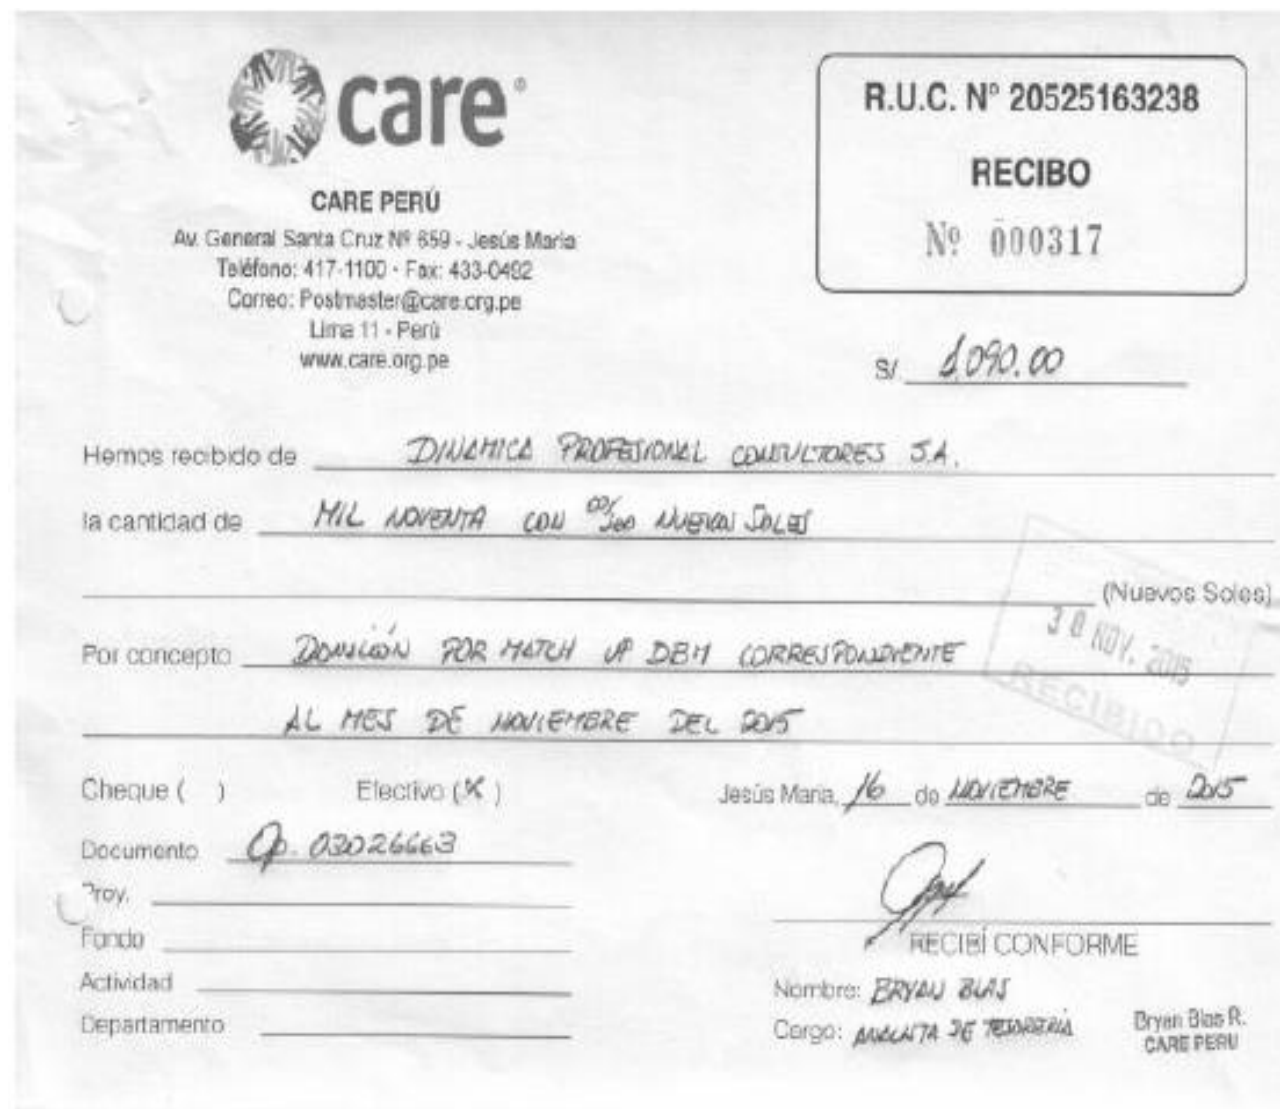 care®
CARE PERÚ
Av. General Santa Cruz Nº 659 - Jesús María
Teléfono: 417-1100 - Fax: 433-0492
Correo: Postmaster@care.org.pe
Lima 11 - Perú
www.care.org.pe
R.U.C. Nº 20525163238
RECIBO
Nº 000317
S/. 1,090.00
Hemos recibido de DINAMICA PROFESIONAL CONSULTORES S.A.
la cantidad de MIL NOVENTA CON 00/100 NUEVOS SOLES
(Nuevos Soles)
Por concepto DONACIÓN POR MATCH UP DBM CORRESPONDIENTE
AL MES DE NOVIEMBRE DEL 2015
30 NOV. 2015
RECIBIDO
Cheque ( ) Efectivo (X)
Jesús María, 16 de NOVIEMBRE de 2015
Documento Op. 03026663
Proy.
Fondo
Actividad
Departamento
RECIBÍ CONFORME
Nombre: BRYAN BLAS
Cargo: ANALISTA DE TESORERIA
Bryan Blas R.
CARE PERU